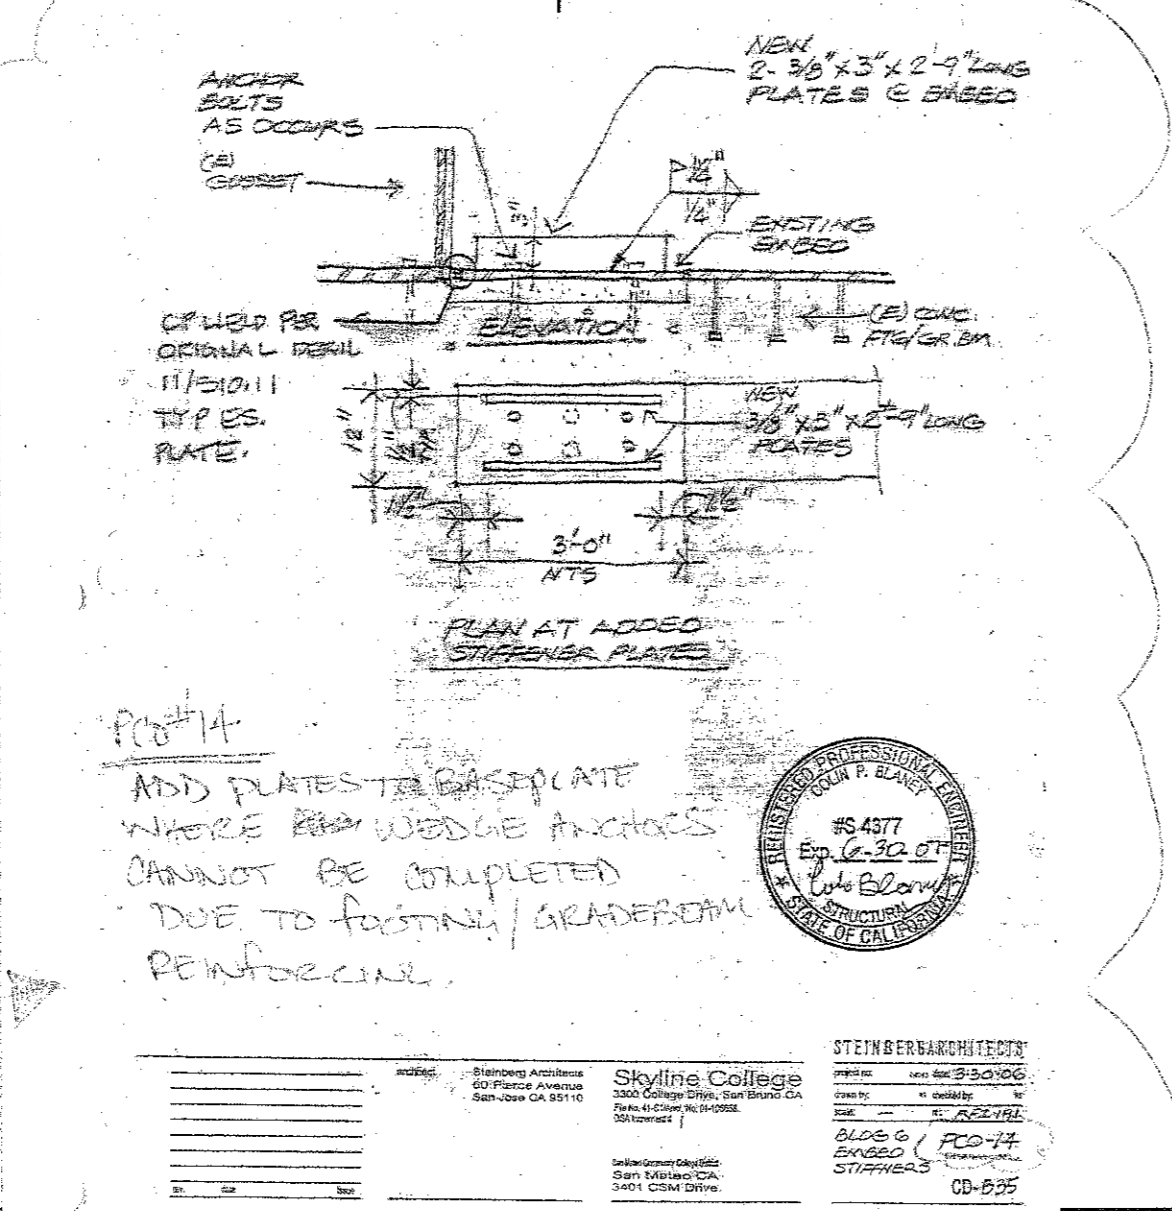 NEW
2- 3/8" X 3" X 2'-9" LONG
PLATES @ EMBED
ANCHOR
BOLTS
AS OCCURS
(E)
GUSSET
3"
1/4"
EXISTING
EMBED
CP WELD PER
ORIGINAL DETAIL
TYP ES.
PLATE.
ELEVATION
(E) CONC.
FTG/GR.BM.
NEW
3/8" X 3" X 2'-9" LONG
PLATES
12"
1 1/2"
1 1/2"
3'-0"
NTS
PLAN AT ADDED
STIFFENER PLATES
PCO #14
ADD PLATES TO BASEPLATE
WHERE WEDGE ANCHORS
CANNOT BE COMPLETED
DUE TO FOOTING / GRADEBEAM
REINFORCING.
REGISTERED PROFESSIONAL ENGINEER
COLIN P. BLANEY
#S 4377
Exp. 6-30-07
Colin Blaney
STRUCTURAL
STATE OF CALIFORNIA
architect
Steinberg Architects
60 Pierce Avenue
San Jose CA 95110
Skyline College
3300 College Drive, San Bruno CA
San Mateo CA
3401 CSM Drive
STEINBERGARCHITECTS
project no:
date: 3-30-06
drawn by:
checked by:
scale: —
BLDG 6
EMBED
STIFFNERS
PCO-14
CD-B35